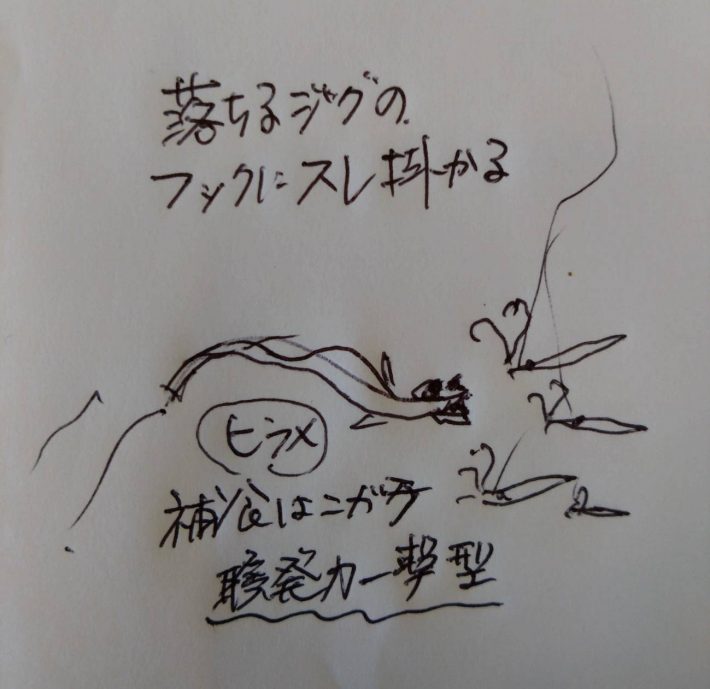 落ちるジグの
フックにスレ掛かる
ヒラメ
補食はニガテ
瞬発力一撃型